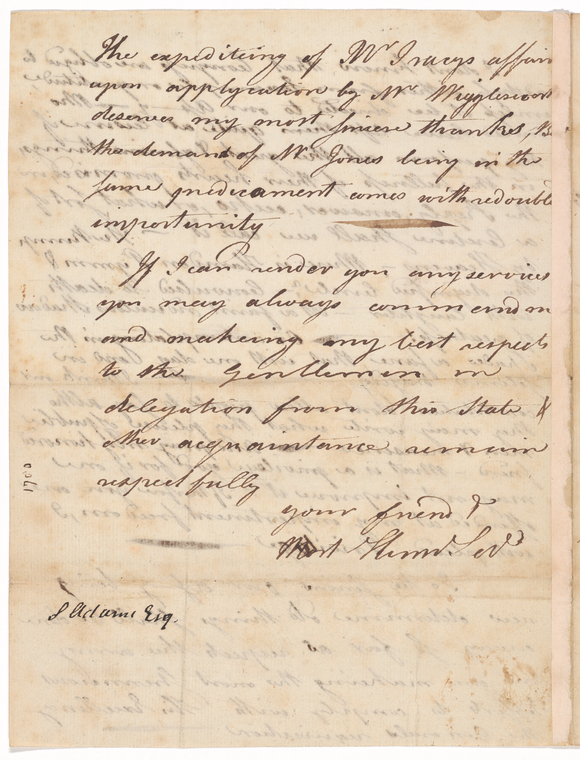 The expediteing of Mr Tracys affair
upon applycation by Mr Wigglesworth
deserves my most sincere thanks, B
the demand of Mr Jones being in the
same predicament comes with redouble
importunity
If I can render you any services
you may always commend m
and makeing my best respects
to the Gentlemen in
delegation from this State &
other acquaintance remain
respectfully
your friend &
Most Hum. Ser
S Adams Esq.